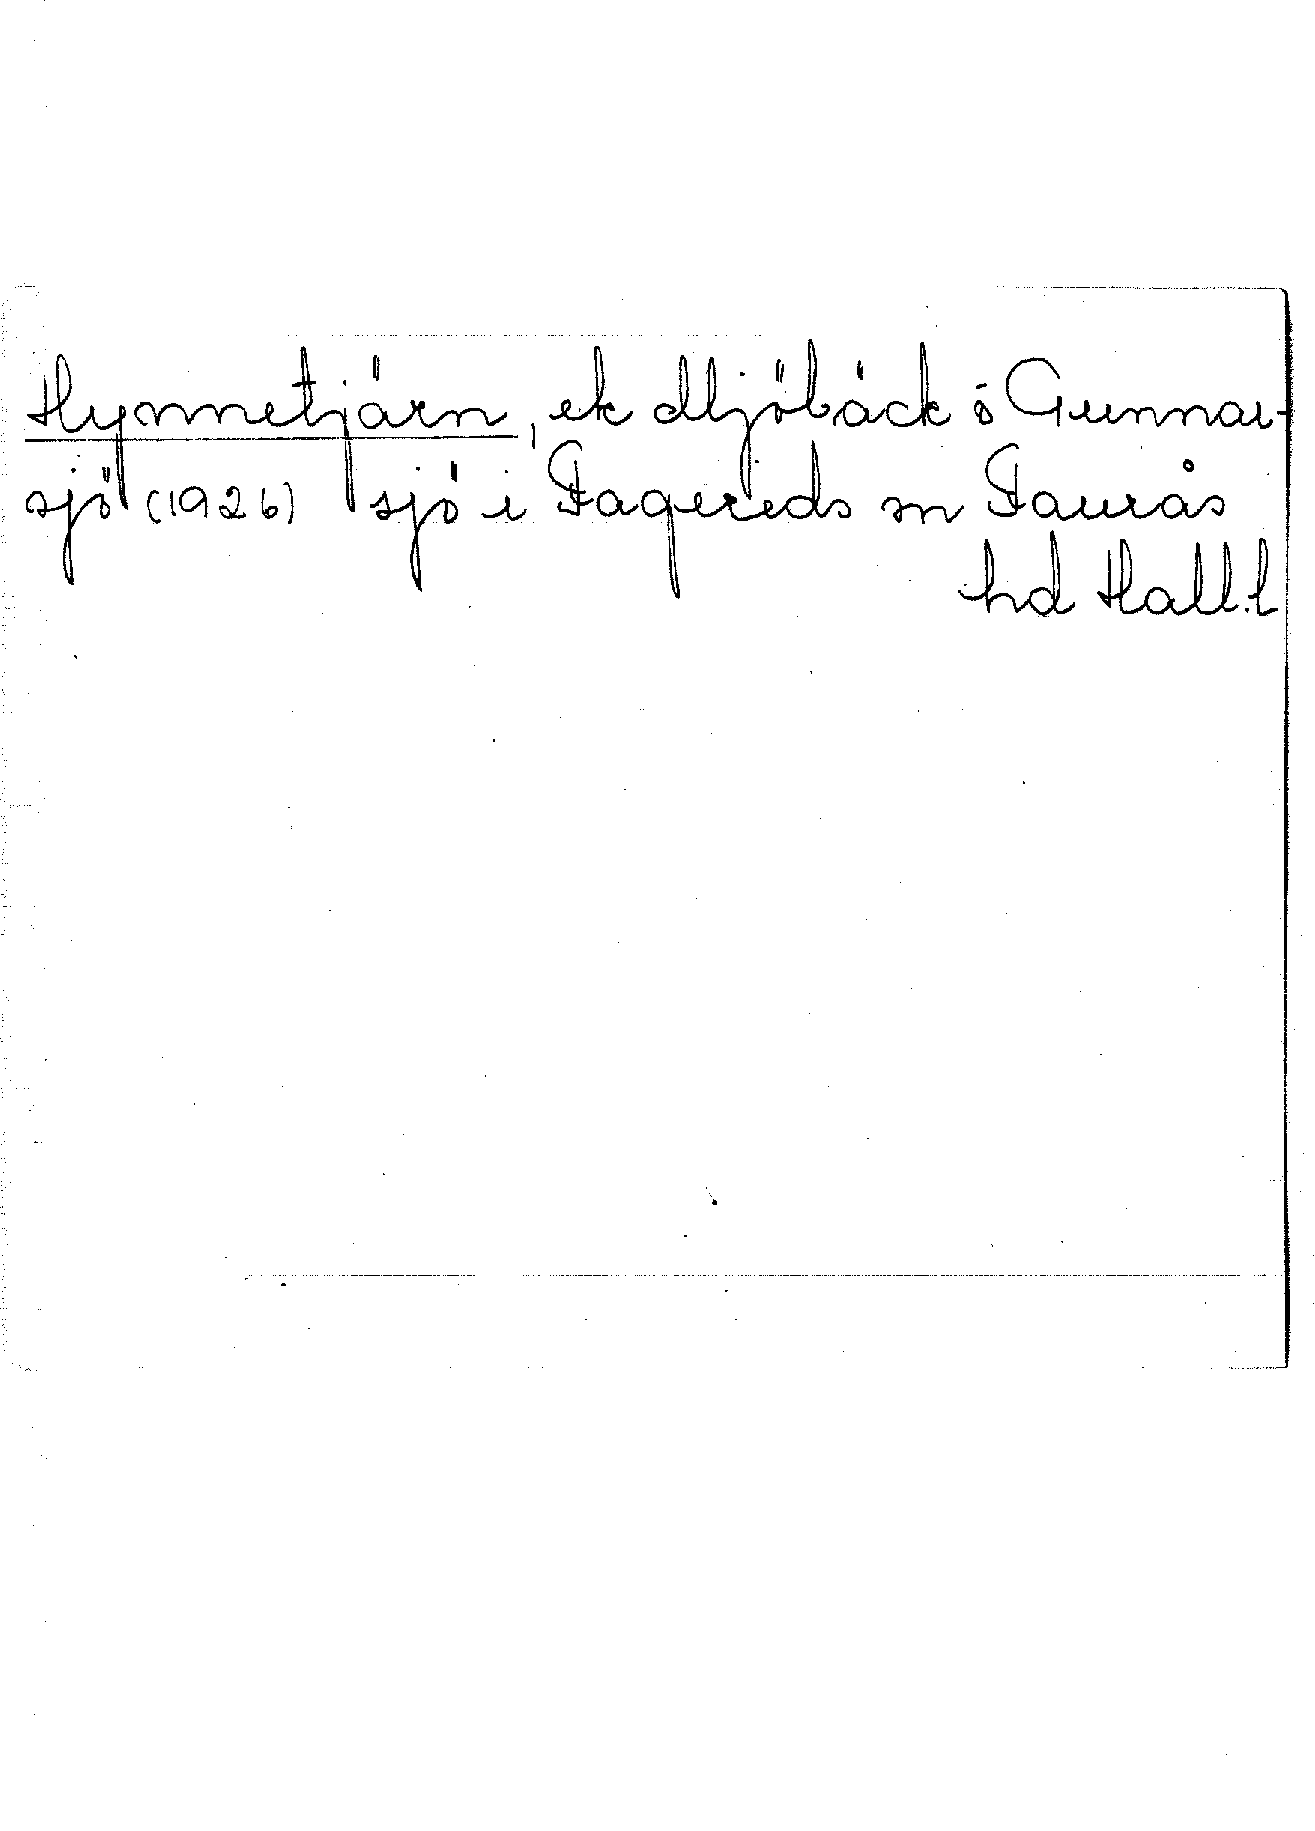 Hynnetjärn, ek Mjöbäck ö Gunnar-
sjö (1926) sjö i Fagereds sn Faurås
hd Hall.l